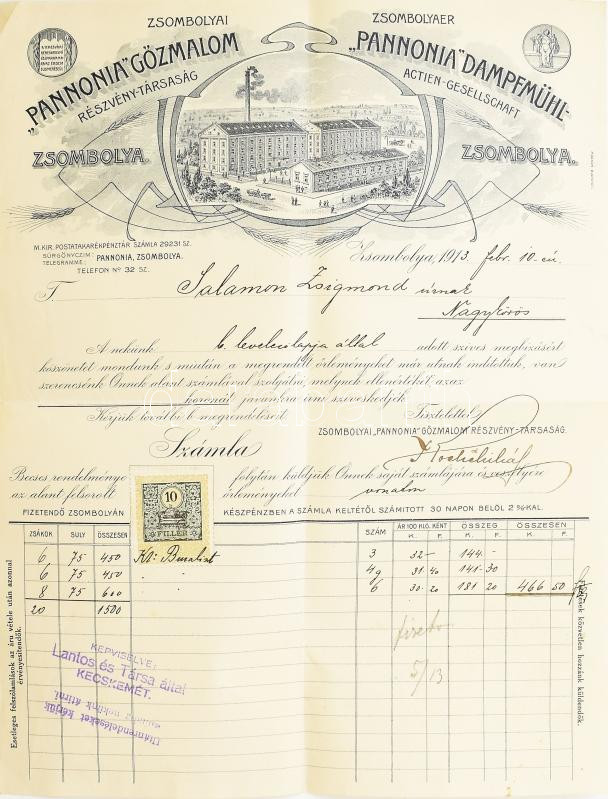 ZSOMBOLYAI
„PANNONIA" GŐZMALOM
RÉSZVÉNY-TÁRSASÁG
ZSOMBOLYA.
ZSOMBOLYAER
„PANNONIA" DAMPFMÜHL-
ACTIEN-GESELLSCHAFT
ZSOMBOLYA.
M. KIR. POSTATAKARÉKPÉNZTÁR SZÁMLA 29231 SZ.
SÜRGÖNYCZIM:
TELEGRAMME: PANNONIA, ZSOMBOLYA.
TELEFON Nº 32 SZ.
Zsombolya, 1913 febr. 10-én
T. Salamon Zsigmond úrnak
Nagykőrös
A nekünk b. levelezőlapja által adott szíves megbízásért
köszönetet mondunk s miután a megrendelt őrleményeket már utnak indítottuk, van
szerencsénk Önnek alázt számlával szolgálni, melynek ellenértékét, azaz
koronát javunkra irni szíveskedjék.
Kérjük további b. megrendeléseit. Tisztelettel
ZSOMBOLYAI „PANNONIA" GŐZMALOM RÉSZVÉNY-TÁRSASÁG.
Számla
Becses rendelménye folytán küldjük Önnek saját számlájára és veszélyére
az alant felsorolt őrleményeket vonaton
10
FILLÉR
FIZETENDŐ ZSOMBOLYÁN KÉSZPÉNZBEN A SZÁMLA KELTÉTŐL SZÁMÍTOTT 30 NAPON BELÜL 2 %-KAL.
ZSÁKOK SULY ÖSSZESEN SZÁM ÁR 100 KLG. KÉNT ÖSSZEG ÖSSZESEN
K. F. K. F. K. F.
6 75 450 3 32 - 144 -
6 75 450 " " 4g 31 40 141 30
8 75 600 " " 6 30 20 181 20 466 50
20 1500
fizetve
5/13
KÉPVISELVE:
Lantos és Társa által
KECSKEMÉT.
Utánrendeléseket kérjük
nekünk átírni.
Esetleges felszólamlásnk az áru vétele után azonnal
érvényesitendők.
közvetlen hozzánk küldendők.